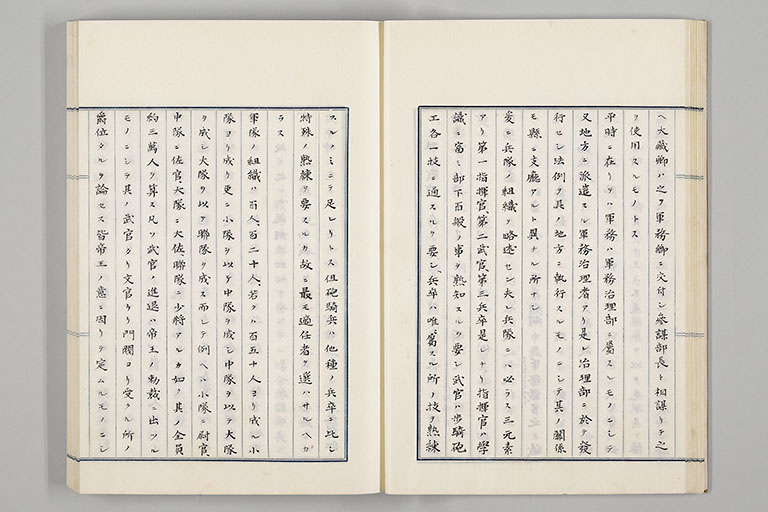 ヘ大藏卿ハ之ヲ軍務卿ニ交付シ參謀部長ト相謀リテ之
ヲ使用スルモノトス
平時ニ在リテハ軍務ハ軍務治理部ニ屬スルモノニシテ
又地方ニ派遣スル軍務治理者アリ是レ治理部ニ於テ發
行セシ法例ヲ其ノ地方ニ執行スルモノニシテ其ノ關係
モ縣ニ支廳アルト異ナル所ナシ
爰ニ兵隊ノ組織ヲ略述セン夫レ兵隊ニハ必ラス三元素
アリ第一指揮官第二武官第三兵卒是レナリ指揮官ハ學
識ニ富ミ部下百般ノ事ヲ熟知スルヲ要シ武官ハ步騎砲
工各一技ニ通スルヲ要シ兵卒ハ唯屬スル所ノ技ヲ熟練
スルノミニテ足レリトス但砲騎兵ハ他種ノ兵卒ニ比シ
特殊ノ熟練ヲ要スルカ故ニ最モ適任者ヲ選ハサルヘカ
ラス
軍隊ノ組織ハ百人、百二十人、若クハ百五十人ヨリ成ル小
隊ヨリ成リ更ニ小隊ヲ以テ中隊ヲ成シ中隊ヲ以テ大隊
ヲ成シ大隊ヲ以テ聯隊ヲ成ス而シテ例ヘハ小隊ニ尉官
中隊ニ佐官大隊ニ大佐聯隊ニ少將アルカ如ク其ノ全員
約三萬人ヲ算ス凡ソ武官ノ進退ハ帝王ノ勅裁ニ出ツル
モノニシテ其ノ武官タリ文官タリ門閥ヨリ受クル所ノ
爵位タルヲ論セス皆帝王ノ意ニ因リテ定ムルモノニシ